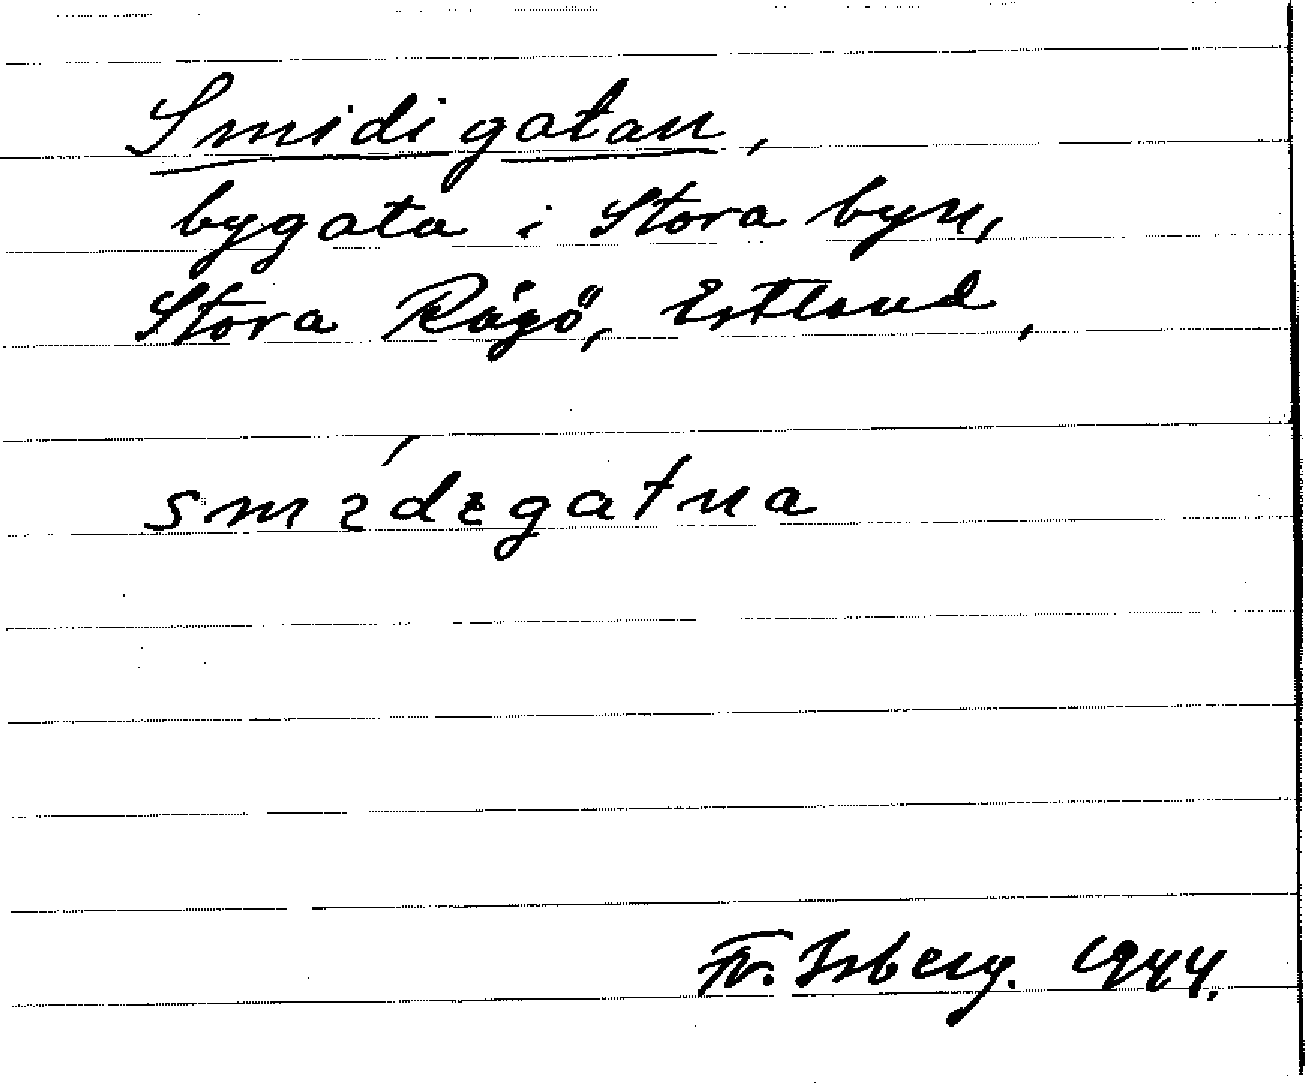 Smidigatan,
bygata i Stora byn,
Stora Rågö, Estland,
smídzgatna
Fr. Isberg. 1944.